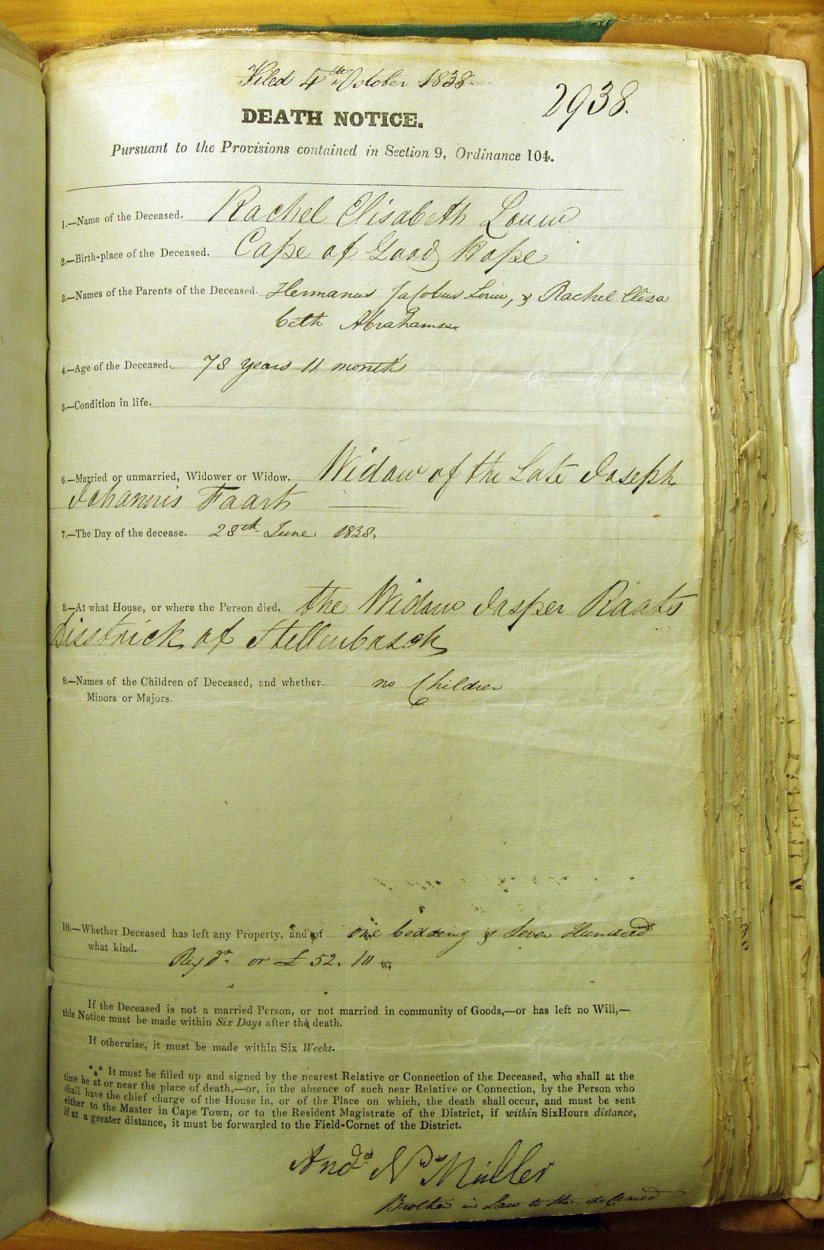 Filed 4th October 1838.
2938.
DEATH NOTICE.
Pursuant to the Provisions contained in Section 9, Ordinance 104.
1.—Name of the Deceased. Rachel Elisabeth Louw
2.—Birth-place of the Deceased. Cape of Good Hope
3.—Names of the Parents of the Deceased. Hermanus Jacobus Louw, & Rachel Elisa
beth Abrahamse
4.—Age of the Deceased. 78 years 11 months
5.—Condition in life.
6.—Married or unmarried, Widower or Widow. Widow of the Late Joseph
Johannis Faart
7.—The Day of the decease. 28th June 1838.
8.—At what House, or where the Person died. the Widow Jasper Raats
Disstrick of Stellenbosch
9.—Names of the Children of Deceased, and whether no Children
Minors or Majors.
10.—Whether Deceased has left any Property, and of one bedding & Seven Hundred
what kind. Rixdr. or £ 52. 10
If the Deceased is not a married Person, or not married in community of Goods,—or has left no Will,—
this Notice must be made within Six Days after the death.
If otherwise, it must be made within Six Weeks.
*** It must be filled up and signed by the nearest Relative or Connection of the Deceased, who shall at the
time be at or near the place of death,—or, in the absence of such near Relative or Connection, by the Person who
shall have the chief charge of the House in, or of the Place on which, the death shall occur, and must be sent
either to the Master in Cape Town, or to the Resident Magistrate of the District, if within SixHours distance,
if at a greater distance, it must be forwarded to the Field-Cornet of the District.
Ands Nds Müller
Brother in Law to the deceased